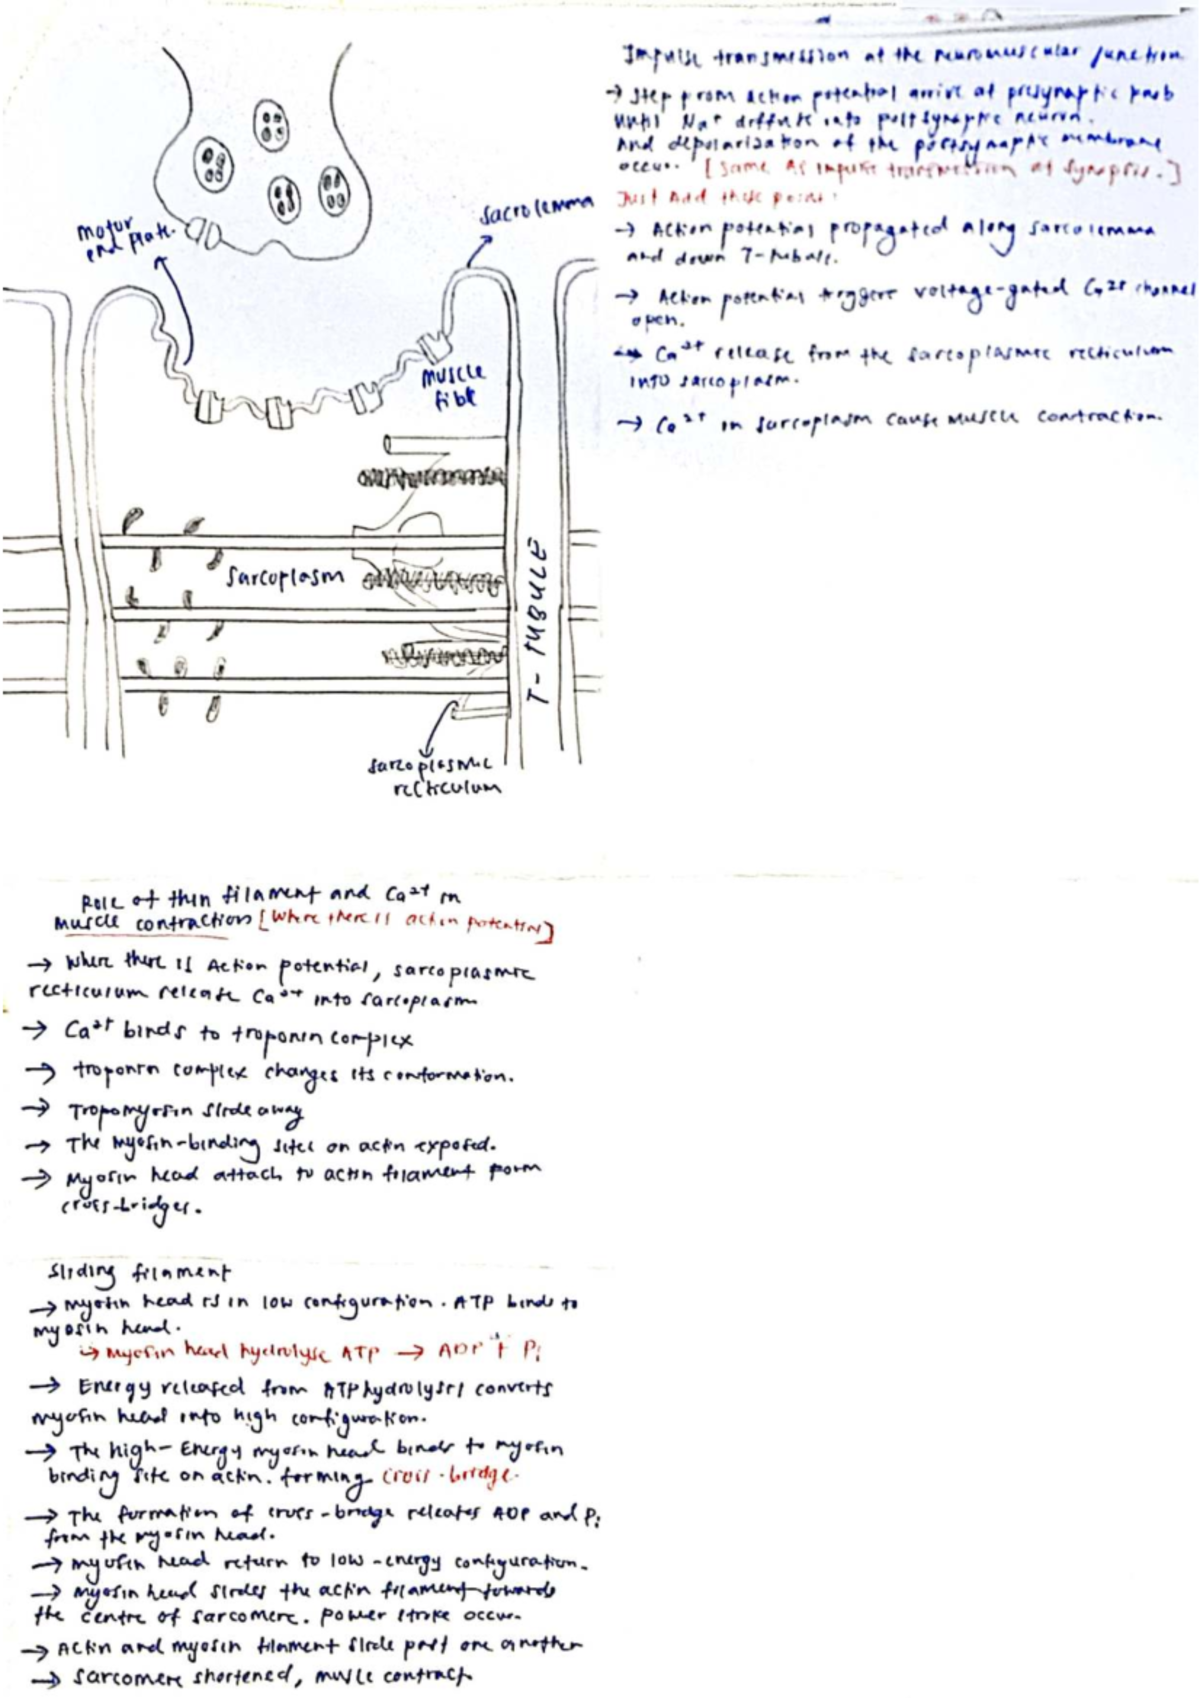 motor
end plate.
sacrolemma
muscle
fibe
sarcoplasm
T-TUBULE
sarcoplasmic
recticulum
Impulse transmission at the neuromuscular junction
→ Step from action potential arrive at presynaptic
until Na+ diffuse into postsynaptic neuron.
And depolarization of the postsynaptic membrane
occur. [Same as impulse transmission at synapsis.]
Just add these point:
→ Action potential propagated along sarcolemma
and down T-tubule.
→ Action potential trigger voltage-gated Ca2+ channel
open.
→ Ca2+ release from the sarcoplasmic recticulum
into sarcoplasm.
→ Ca2+ in sarcoplasm cause muscle contraction.
Role of thin filament and Ca2+ in
muscle contraction [Where there is action potential]
→ Where there is Action potential, sarcoplasmic
recticulum release Ca2+ into sarcoplasm
→ Ca2+ binds to troponin complex
→ troponin complex changes its conformation.
→ Tropomyosin slide away
→ The myosin-binding sites on actin exposed.
→ Myosin head attach to actin filament form
cross-bridges.
Sliding filament
→ myosin head is in low configuration. ATP binds to
myosin head.
↳ Myosin head hydrolyse ATP → ADP + Pi
→ Energy released from ATP hydrolysis converts
myosin head into high configuration.
→ The high-Energy myosin head binds to myosin
binding site on actin. forming cross-bridge.
→ The formation of cross-bridge releases ADP and Pi
from the myosin head.
→ myosin head return to low-energy configuration.
→ myosin head slides the actin filament towards
the centre of sarcomere. power stroke occur.
→ Actin and myosin filament slide past one another
→ Sarcomere shortened, muscle contract.